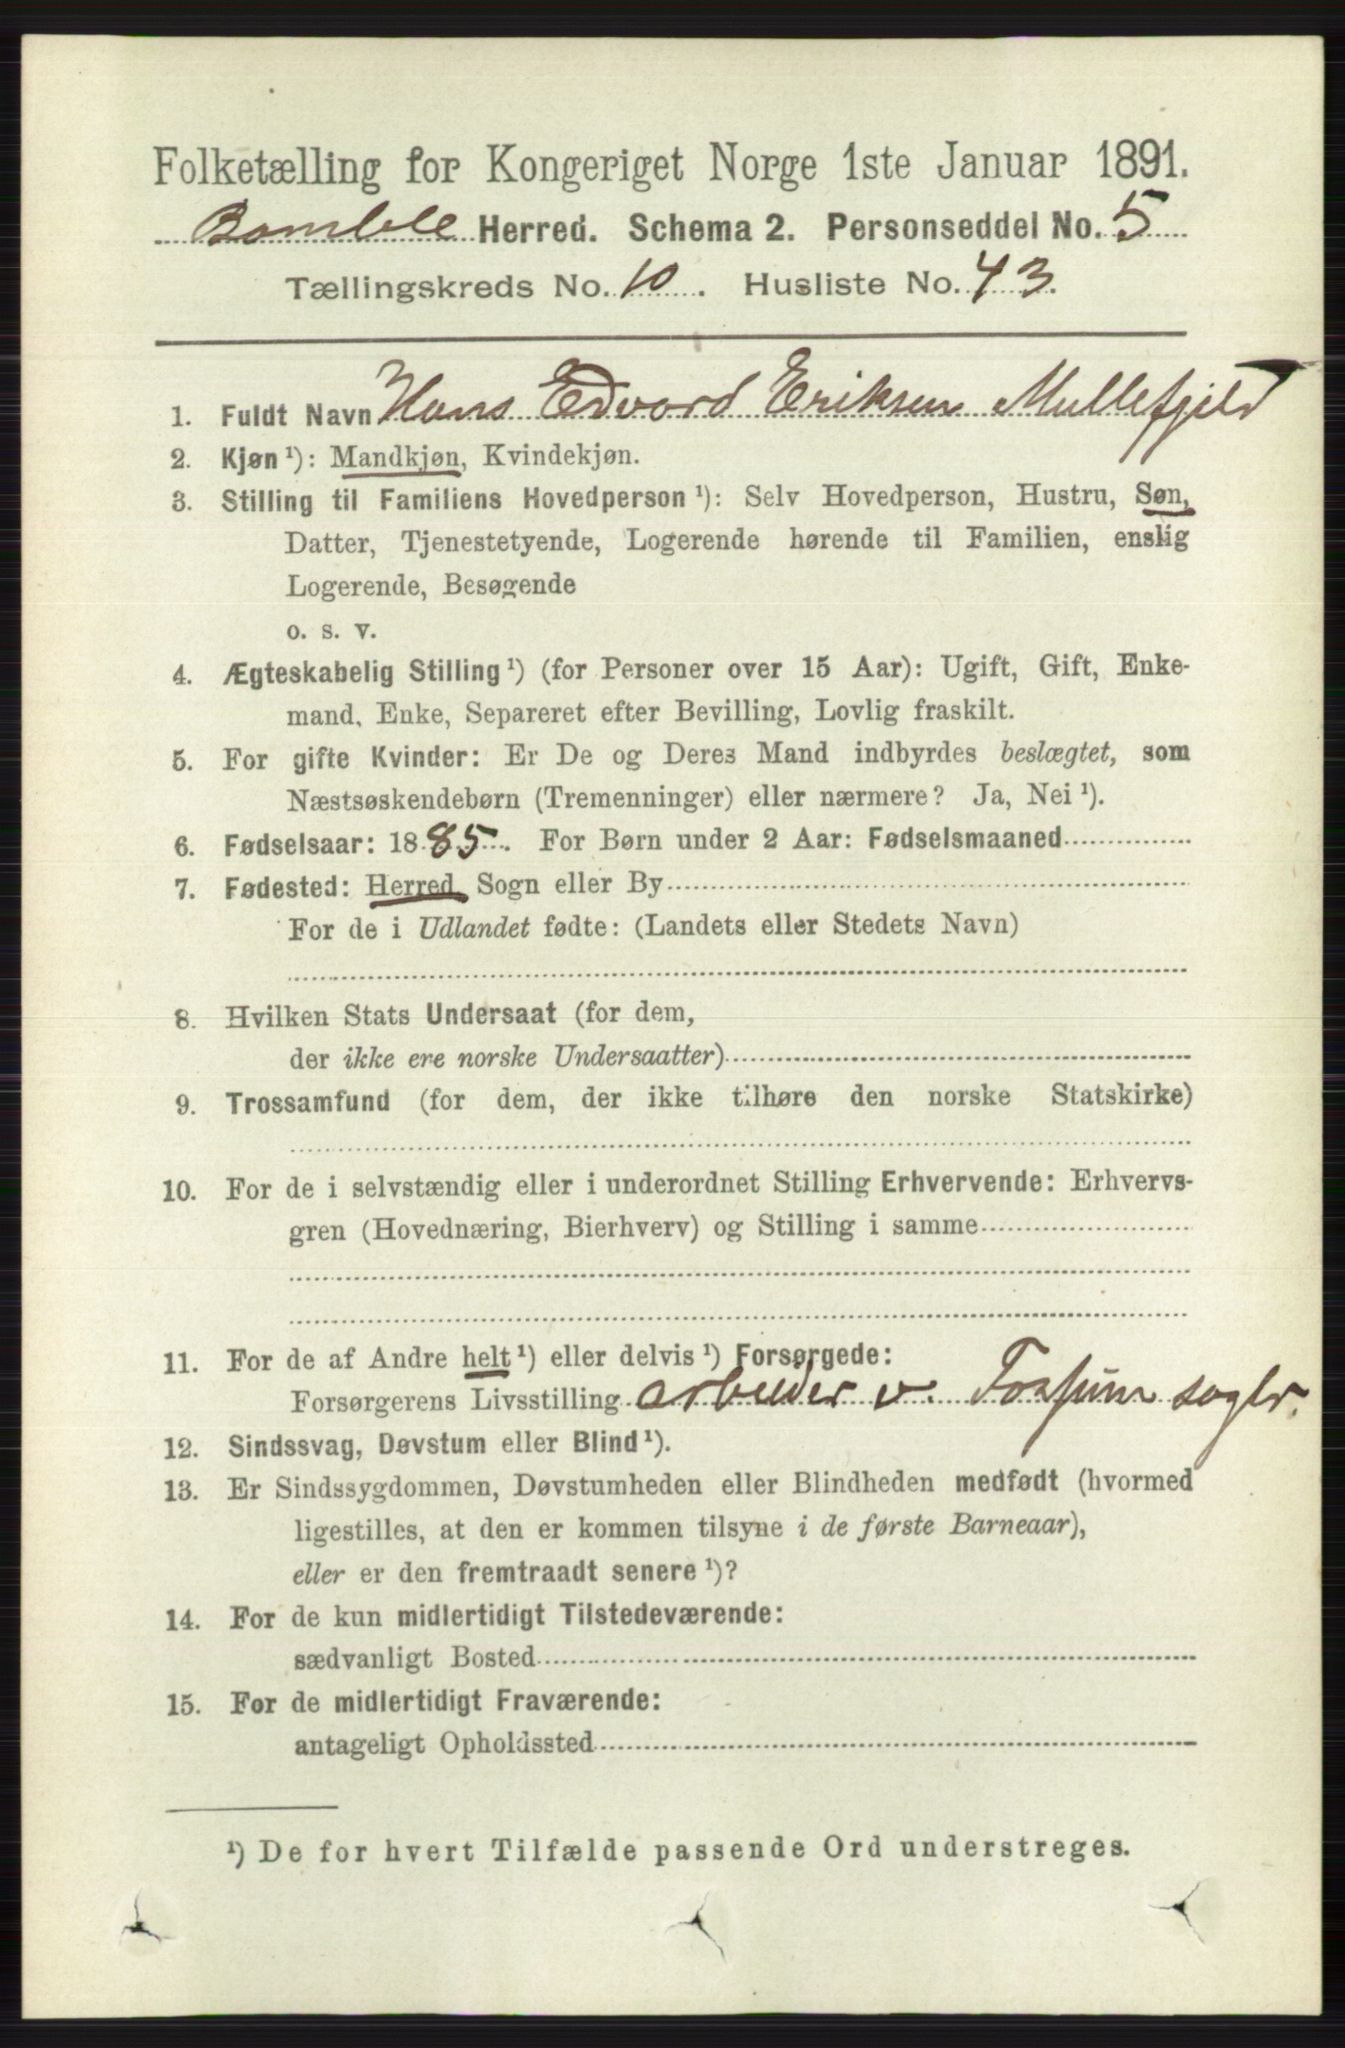 Folketælling for Kongeriget Norge 1ste Januar 1891.
Bamble Herred. Schema 2. Personseddel No. 5
Tællingskreds No. 10. Husliste No. 43.
1. Fuldt Navn Hans Edvard Eriksen Mullefjeld
2. Kjøn ¹): Mandkjøn, Kvindekjøn.
3. Stilling til Familiens Hovedperson ¹): Selv Hovedperson, Hustru, Søn,
Datter, Tjenestetyende, Logerende hørende til Familien, enslig
Logerende, Besøgende
o. s. v.
4. Ægteskabelig Stilling ¹) (for Personer over 15 Aar): Ugift, Gift, Enke-
mand, Enke, Separeret efter Bevilling, Lovlig fraskilt.
5. For gifte Kvinder: Er De og Deres Mand indbyrdes beslægtet, som
Næstsøskendebørn (Tremenninger) eller nærmere? Ja, Nei ¹).
6. Fødselsaar: 1885. For Børn under 2 Aar: Fødselsmaaned
7. Fødested: Herred, Sogn eller By
For de i Udlandet fødte: (Landets eller Stedets Navn)
8. Hvilken Stats Undersaat (for dem,
der ikke ere norske Undersaatter)
9. Trossamfund (for dem, der ikke tilhøre den norske Statskirke)
10. For de i selvstændig eller i underordnet Stilling Erhvervende: Erhvervs-
gren (Hovednæring, Bierhverv) og Stilling i samme
11. For de af Andre helt ¹) eller delvis ¹) Forsørgede:
Forsørgerens Livsstilling arbeider v.
12. Sindssvag, Døvstum eller Blind ¹).
13. Er Sindssygdommen, Døvstumheden eller Blindheden medfødt (hvormed
ligestilles, at den er kommen tilsyne i de første Barneaar),
eller er den fremtraadt senere ¹)?
14. For de kun midlertidigt Tilstedeværende:
sædvanligt Bosted
15. For de midlertidigt Fraværende:
antageligt Opholdssted
¹) De for hvert Tilfælde passende Ord understreges.